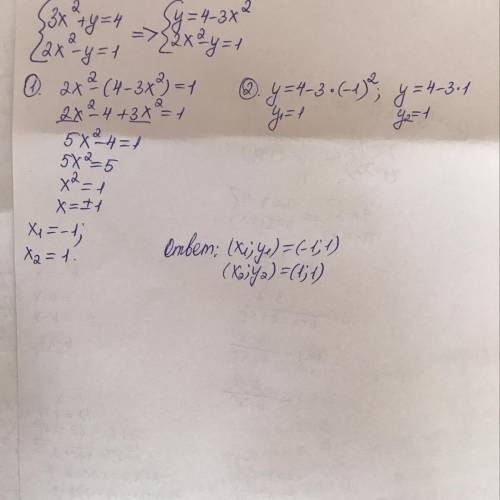 {3x²+y=4 => {y=4-3x²
{2x²-y=1 {2x²-y=1
①. 2x²-(4-3x²)=1
2x²-4+3x²=1
5x²-4=1
5x²=5
x²=1
x=±1
x₁=-1;
x₂=1.
②. y=4-3·(-1)²; y=4-3·1
y₁=1 y₂=1
Ответ: (x₁;y₁)=(-1;1)
(x₂;y₂)=(1;1)